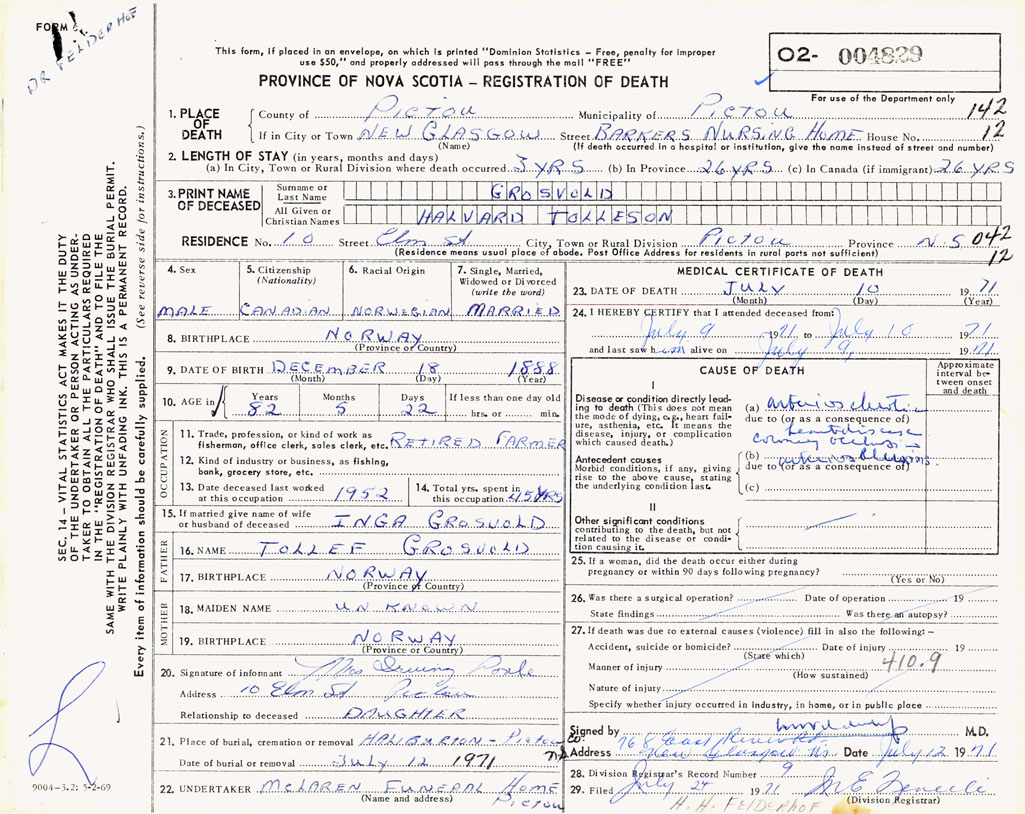 FORM 6.
DR FELDERHOF
This form, if placed in an envelope, on which is printed "Dominion Statistics – Free, penalty for improper
use $50," and properly addressed will pass through the mail "FREE"
O2- 004829
For use of the Department only
PROVINCE OF NOVA SCOTIA – REGISTRATION OF DEATH
1. PLACE OF DEATH
County of PICTOU Municipality of PICTOU 142
If in City or Town NEW GLASGOW Street BARKERS NURSING HOME House No. 12
(Name) (If death occurred in a hospital or institution, give the name instead of street and number)
2. LENGTH OF STAY (in years, months and days)
(a) In City, Town or Rural Division where death occurred 3 YRS (b) In Province 26 YRS (c) In Canada (if immigrant) 26 YRS
3. PRINT NAME OF DECEASED
Surname or Last Name GROSVOLD
All Given or Christian Names HALVARD TOLLESON
RESIDENCE No. 10 Street Elm St City, Town or Rural Division Pictou Province N.S 042
(Residence means usual place of abode. Post Office Address for residents in rural parts not sufficient) 12
4. Sex MALE
5. Citizenship (Nationality) CANADIAN
6. Racial Origin NORWEGIAN
7. Single, Married, Widowed or Divorced (write the word) MARRIED
8. BIRTHPLACE NORWAY
(Province or Country)
9. DATE OF BIRTH DECEMBER 18 1888
(Month) (Day) (Year)
10. AGE in Years 82 Months 5 Days 22 If less than one day old hrs. or min.
OCCUPATION
11. Trade, profession, or kind of work as
fisherman, office clerk, sales clerk, etc. RETIRED FARMER
12. Kind of industry or business, as fishing,
bank, grocery store, etc.
13. Date deceased last worked
at this occupation 1952
14. Total yrs. spent in
this occupation 45 YRS
15. If married give name of wife
or husband of deceased INGA GROSVOLD
FATHER
16. NAME TOLLEF GROSVOLD
17. BIRTHPLACE NORWAY
(Province or Country)
MOTHER
18. MAIDEN NAME UNKNOWN
19. BIRTHPLACE NORWAY
(Province or Country)
20. Signature of informant Mrs Irving
Address 10 Elm St Pictou
Relationship to deceased DAUGHTER
21. Place of burial, cremation or removal HALIBURTON – Pictou Co. N.S.
Date of burial or removal JULY 12 1971
22. UNDERTAKER McLAREN FUNERAL HOME
(Name and address) PICTOU
MEDICAL CERTIFICATE OF DEATH
23. DATE OF DEATH JULY 10 1971
(Month) (Day) (Year)
24. I HEREBY CERTIFY that I attended deceased from:
July 9 1971 to July 10 1971
and last saw him alive on July 9, 1971
CAUSE OF DEATH
Approximate interval between onset and death
I
Disease or condition directly leading to death (This does not mean the mode of dying, e.g., heart failure, asthenia, etc. It means the disease, injury, or complication which caused death.)
(a) arteriosclerotic
due to (or as a consequence of)
heart disease
coronary occlusion
Antecedent causes
Morbid conditions, if any, giving rise to the above cause, stating the underlying condition last.
(b)
due to (or as a consequence of)
(c)
II
Other significant conditions
contributing to the death, but not related to the disease or condition causing it.
25. If a woman, did the death occur either during
pregnancy or within 90 days following pregnancy?
(Yes or No)
26. Was there a surgical operation? Date of operation 19
State findings Was there an autopsy?
27. If death was due to external causes (violence) fill in also the following: –
Accident, suicide or homicide? Date of injury 19
(State which)
Manner of injury 410.9
(How sustained)
Nature of injury
Specify whether injury occurred in industry, in home, or in public place
Signed by M.D.
Address 768 East River Rd.
New Glasgow NS. Date July 12 1971
28. Division Registrar's Record Number 9
29. Filed July 24 1971
(Division Registrar)
H. H. FELDERHOF
SEC. 14 – VITAL STATISTICS ACT MAKES IT THE DUTY
OF THE UNDERTAKER OR PERSON ACTING AS UNDER-
TAKER TO OBTAIN ALL THE PARTICULARS REQUIRED
IN THE "REGISTRATION OF DEATH" AND TO FILE THE
SAME WITH THE DIVISION REGISTRAR WHO SHALL ISSUE THE BURIAL PERMIT.
WRITE PLAINLY WITH UNFADING INK. THIS IS A PERMANENT RECORD.
Every item of information should be carefully supplied. (See reverse side for instructions.)
9004-3.2: 5-2-69